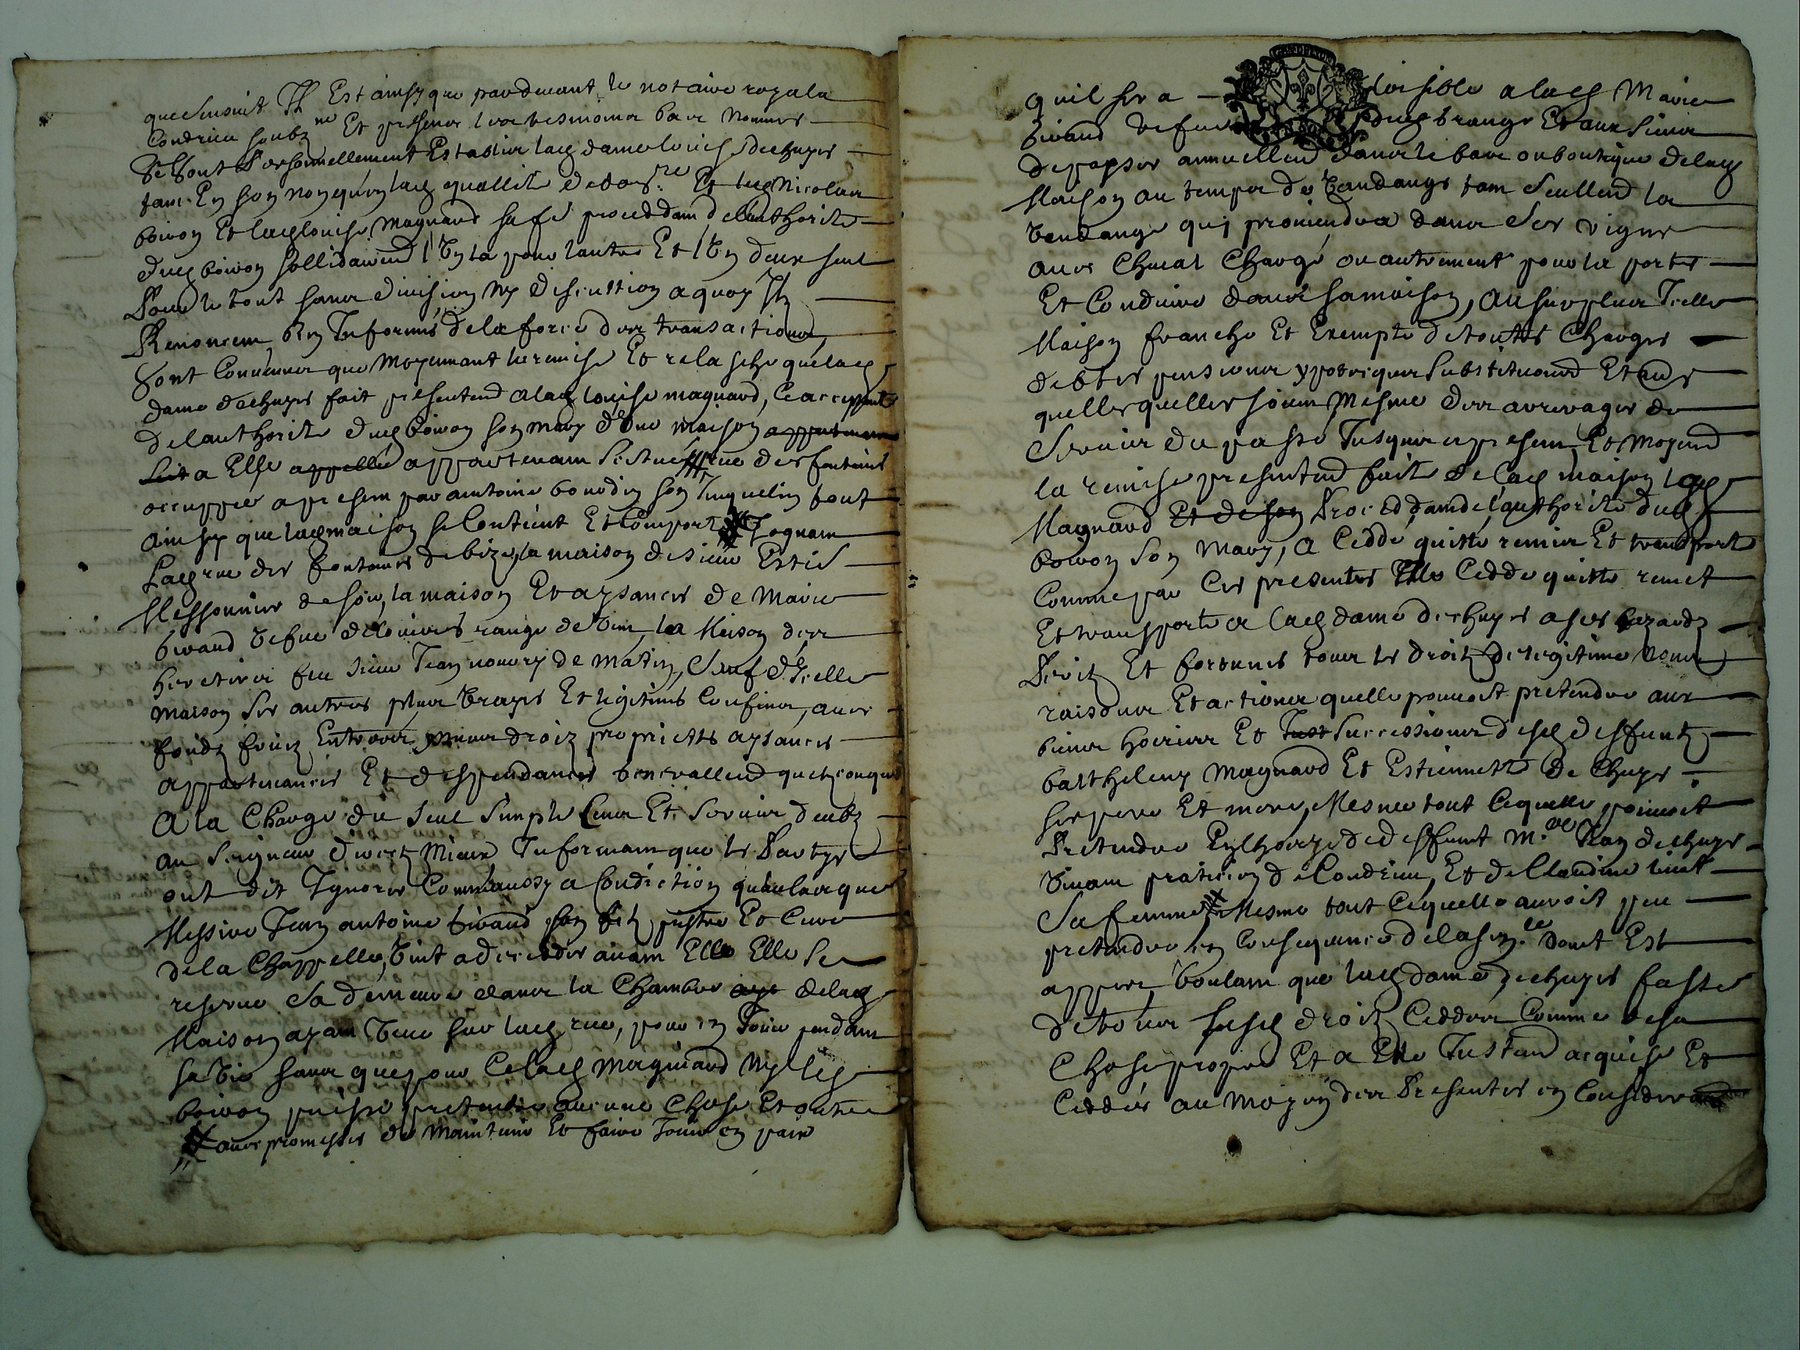 que s'ensuit Il Est ainsy que pardevant le notaire royal a
Condrieu soubz.ne Et presence des tesmoins bas nommes
Se sont Personnellement Establir lad dame louise dechuyes
tant En son nom qu'en lad quallité de Et led Nicolas
boiron Et lad louise magnard sa fe proceddant de l'authorité
dud boiron sollidairem l'Un la pour lautre Et l'Un deux seul
Pour le tout sans division Ny discution a quoy Ilz
Renoncent bien Informés de la force des transactions,
Sont Convenus que Moyennant la remise Et relasche que lad
dame dechuyes fait presentemt a lad louise magnard, Ce acceptant
de lauthorité dud boiron son mary d'Une maison appartenan
sist a Elle appellée appartenant Sistue rue des fontaines
occuppée a present par antoine bourdin son Inquelin tout
ainsy que lad maison se Contient Et Comporte Joignant
Lad rue des fontaines de bize, la maison de sieur Estie
Messonnier de soir, la maison Et aysances de Marie
birand Vefve de brange de vent, la Maison des
heretiers feu sieur Jean nourry de matin, Sauf d'Icelle
maison ses autres plus Vrayes Et legitimes Confins, avec
fondz fruicz Entrées, yssues droiz proprietés aysances
appartenances Et despendances Generallemt quelzconques
A la Charge du seul simple Cens Et Servis deubz
au Seigneur direct Mieux Informant que les Partyes
ont dit Ignorer Comm'aussy a Condiction qu'au Cas que
Messire Jean antoine birand son filz prestre Et Curé
de la Chappelle, Vint a decedder avant Elle Elle se
reserve Sa demeure dans la Chambre de lad
Maison ayant Veue sur lad rue, pour en Jouir pendant
sa Vie sans que pour Ce lad Magnard Ny led
boiron puisse pretendre aucune Chose Et outre
avec promesses de Maintenir Et faire Jouir en paix
qu'il sera loisible a lad Marie
birand Vefve dud brange Et aux siens
de passer annuellemt dans le bas ou boutique de lad
Maison au temps de Vandange tant Seullemt la
Vendange quj proviendra dans Ses vignes
avec Cheval Chargé ou autrement pour la porter
Et Conduire dans sa maison, au surplus Icelle
Maison franche Et Exempte de toutes Charges
debtes pensions ypoteques Substitutions Et autres
quelles quelles soient Mesme des arrerages de
Servis du passé Jusques a present Et Moyent
la remise presentemt faite de lad maison lad
Magnard Et de son Proceddant de l'authorité dud
boiron Son Mary, a Ceddé, quitté remis Et transporté
Comme par Ces presentes Elle Cedde quitte remet
Et transporte a lad dame dechuyes a ses hazardz
Perilz Et fortunes tous les droitz de legitime Noms
raisons Et actions quelle pouvoit pretendre aux
biens hoiries Et Successions desd deffuntz
barthelemy Magnard Et Estiennette de Chuyes
ses pere Et mere, Mesme tout Cequelle pouvoit
Pretendre En l'hoirye de deffunt M.re Jean dechuyes
Vivant praticien de Condrieu, Et de Claudine
Sa femme Mesme tout Cequelle auroit peu
pretendre en Consequence de la sen.ce dont Est
appert, Voulant que lad dame dechuyes fasse
de tous sesd droitz Ceddés Comme de sa
Chose propre Et a Elle Justemt acquise Et
Ceddés au Moyen des Presentes en Considera